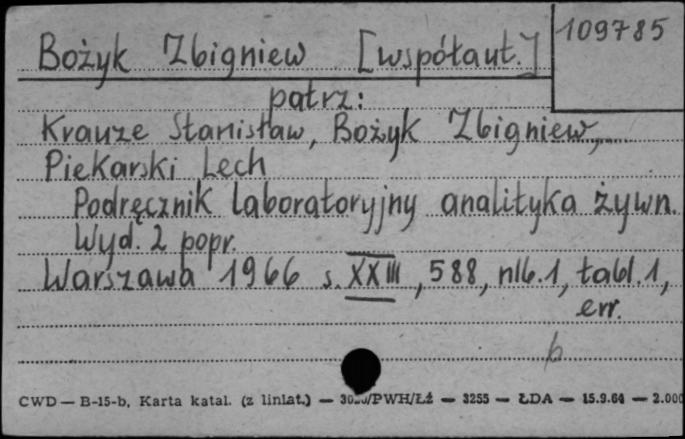 Bożyk Zbigniew [współaut.] 109785
patrz:
Krauze Stanisław, Bożyk Zbigniew,
Piekarski Lech
Podręcznik laboratoryjny analityka żywn.
Wyd. 2 popr.
Warszawa 1966 s. XXIII, 588, nlb. 1, tabl. 1,
err.
b
CWD — B-15-b, Karta katal. (z liniat.) — /PWH/Łź — 3255 — ŁDA — 15.9.64 — 2.000